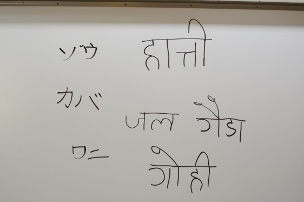 ゾウ हात्ती
カバ जल गैडा
ワニ गोही